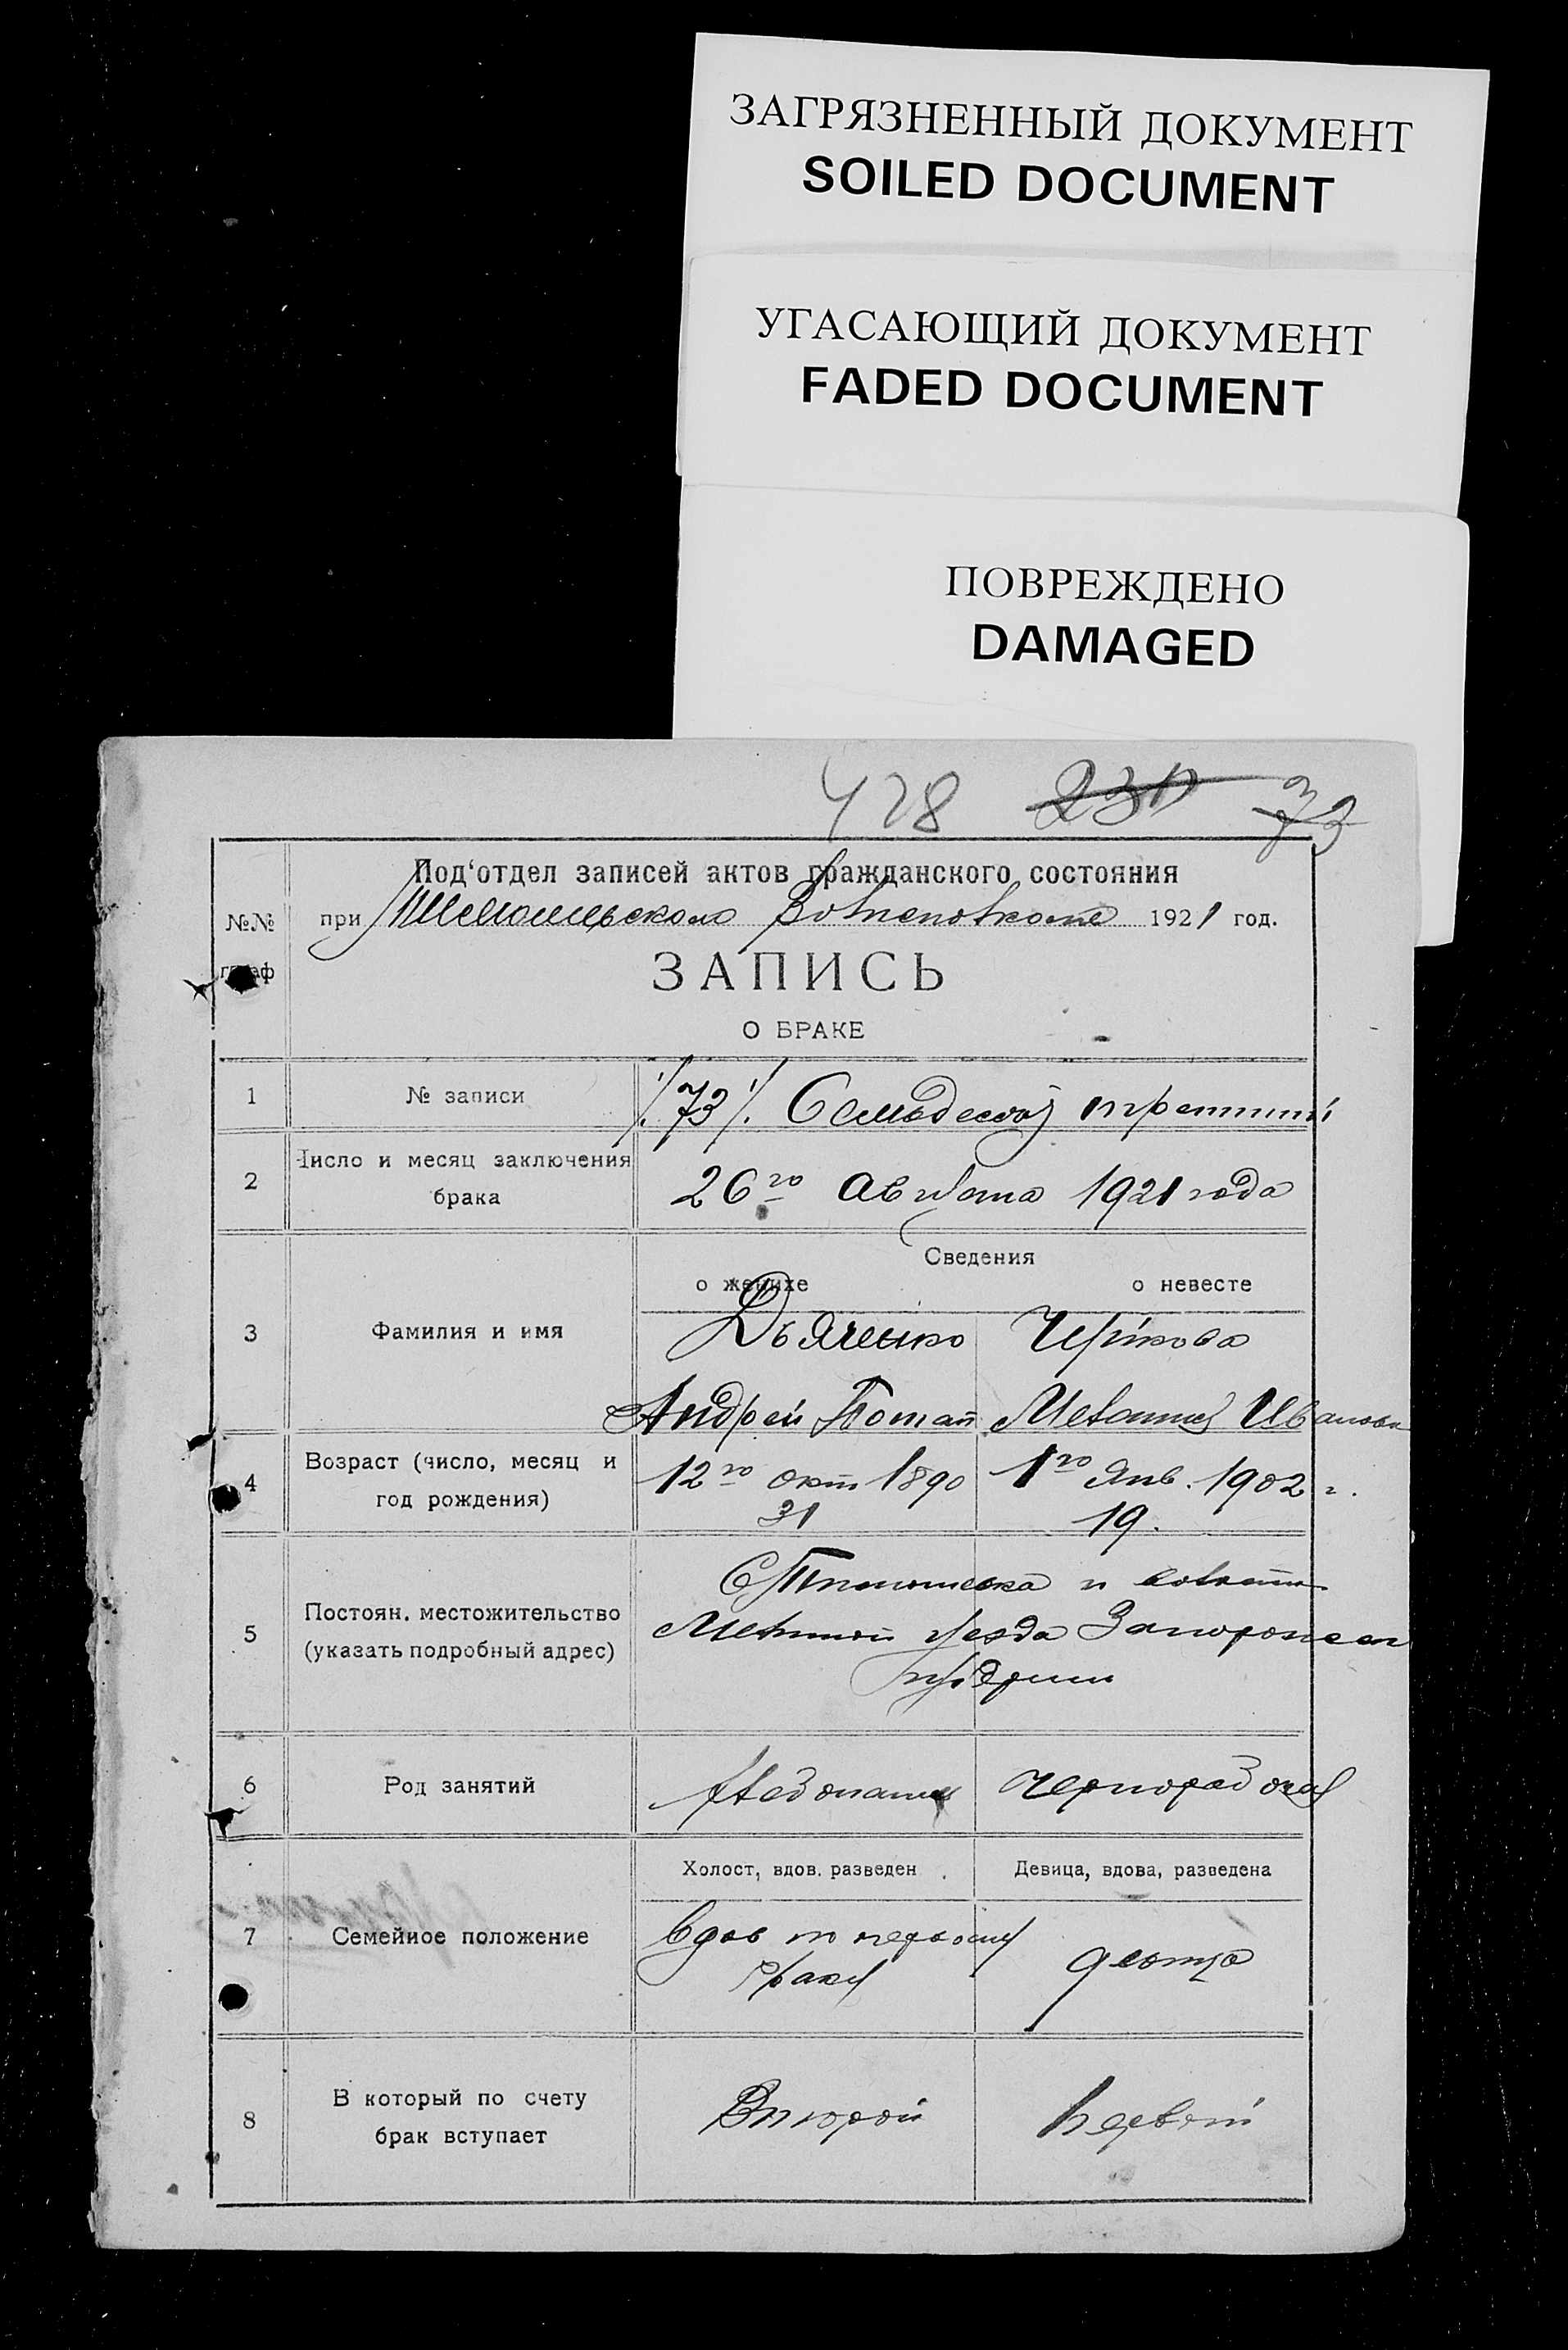 ЗАГРЯЗНЕННЫЙ ДОКУМЕНТ
SOILED DOCUMENT
УГАСАЮЩИЙ ДОКУМЕНТ
FADED DOCUMENT
ПОВРЕЖДЕНО
DAMAGED
428 73
Под‘отдел записей актов гражданского состояния
№№ при 1921 год.
ЗАПИСЬ
О БРАКЕ
1 № записи ./73/. Семьдесят третий
2 Число и месяц заключения
брака 26го Августа 1921 года
Сведения
о женихе о невесте
3 Фамилия и имя Дьяченко
Андрей Потап Ивановн
4 Возраст (число, месяц и
год рождения) 12го окт 1890 1го Янв. 1902 г.
31 19.
5 Постоян. местожительство
(указать подробный адрес) С и волости
уезда Запорожск
губернии
6 Род занятий Хлебопашец чернорабочая
7 Семейное положение Холост, вдов. разведен Девица, вдова, разведена
вдов по первому
браку девица
8 В который по счету
брак вступает Второй первый